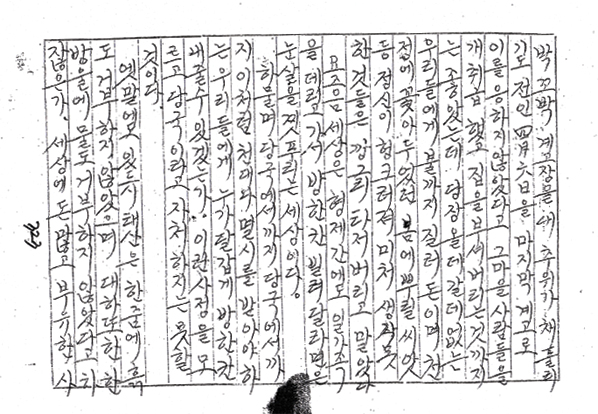 박 꼬박 계고장을 내 추위가 채 풀리
기도 전인 四月六日을 마지막 계고로
이를 응하지 않았다고 그 마을 사람들을
개 취급 했고 집을 부셔버리는 것까지
는 좋았는데 당장 올데 갈데 없는
우리들에게 불까지 질러 돈이며 천
에 꽂아 두었던 봄에 뿌릴 씨앗
등 헝크러져 미처 생각 못
한 것들은 깡그리 타져 버리고 말았다
요즈음 세상은 형제간에도 일가족
을 데리고 가서 방 한칸 빌려 달라면은
눈살을 찟프리는 세상이다.
하물며 당국에서까지 당국에서까
지 이처럼 천대와 멸시를 받아야 하
는 우리들에게 누가 달갑게 방 한칸
내줄수 있겠는가. 이런 사정을 모
르고 당국이라고 자처 하지는 못할
것이다.
옛말에도 있듯이 태산은 한줌에 흙
도 거부 하지 않았으며 대하 또한 한
방울에 물도 거부하지 않았다고 하
잖은가. 세상에 돈 많고 부유한 사